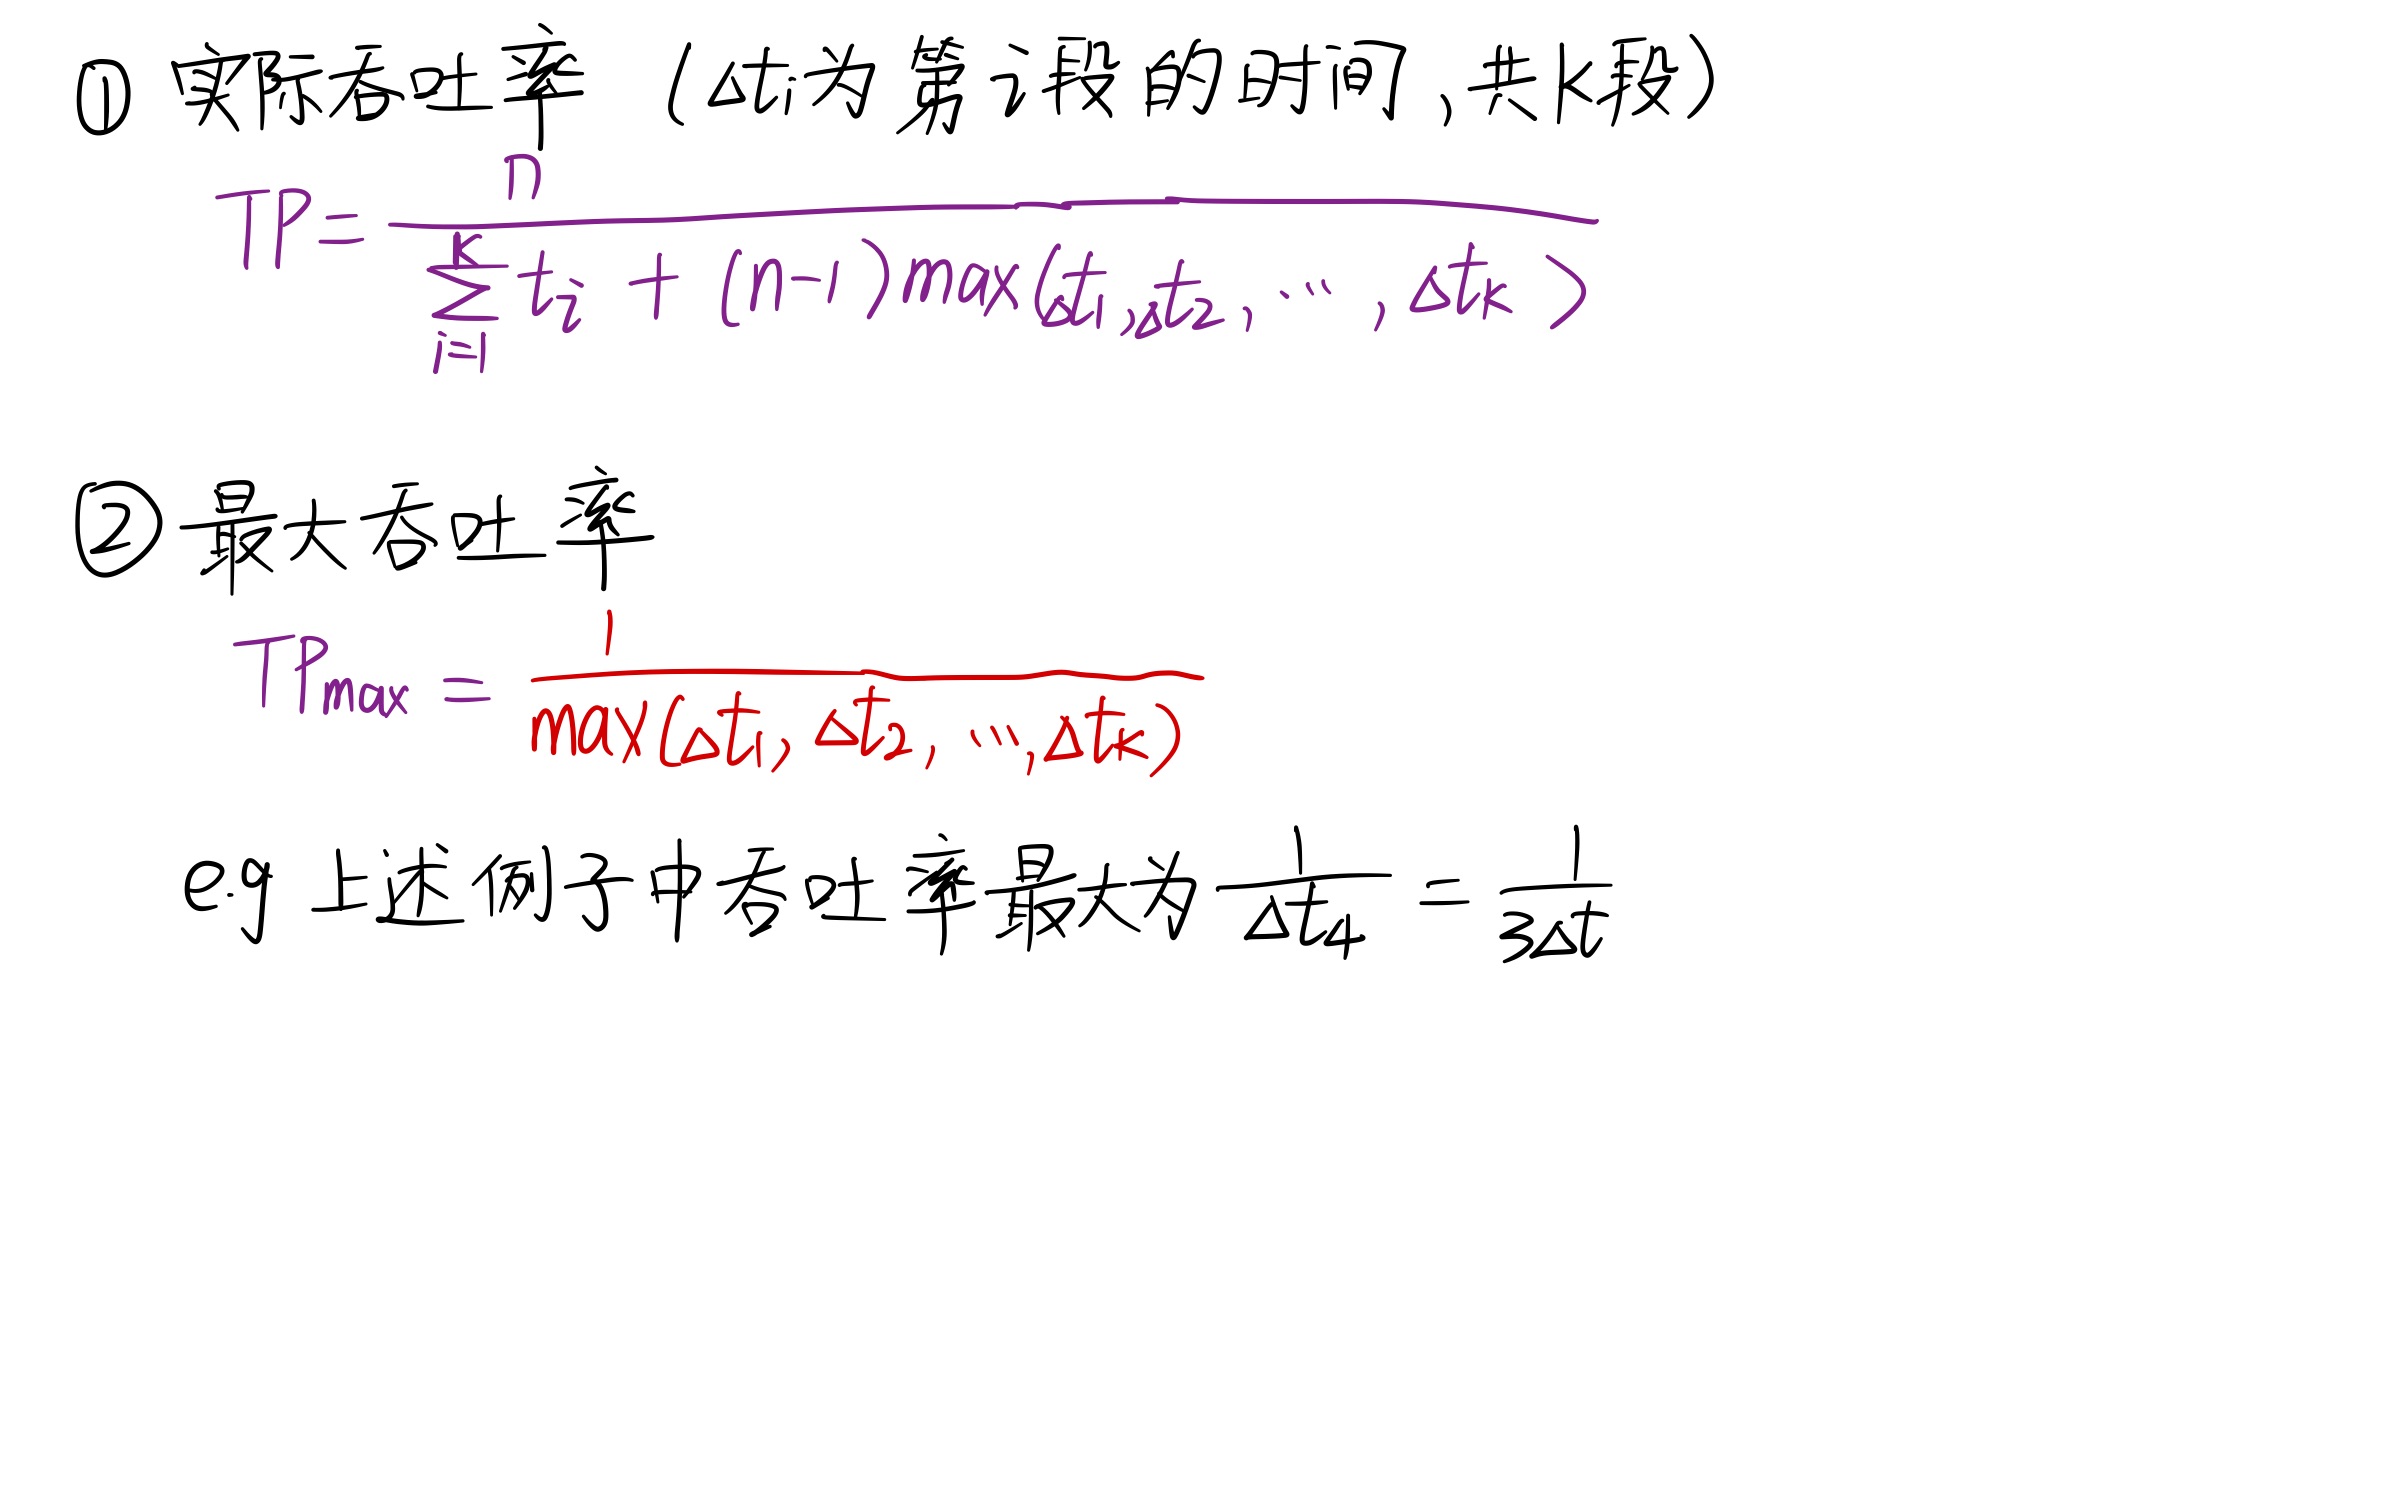 ① 实际吞吐率 (△ti为第i段的时间,共k段)
TP = n / (∑_{i=1}^{k} t_i + (n-1) max(△t_1, △t_2, ..., △t_k))
② 最大吞吐率
TP_max = 1 / max(△t_1, △t_2, ..., △t_k)
e.g 上述例子中吞吐率最大为 1/△t_4 = 1/3△t